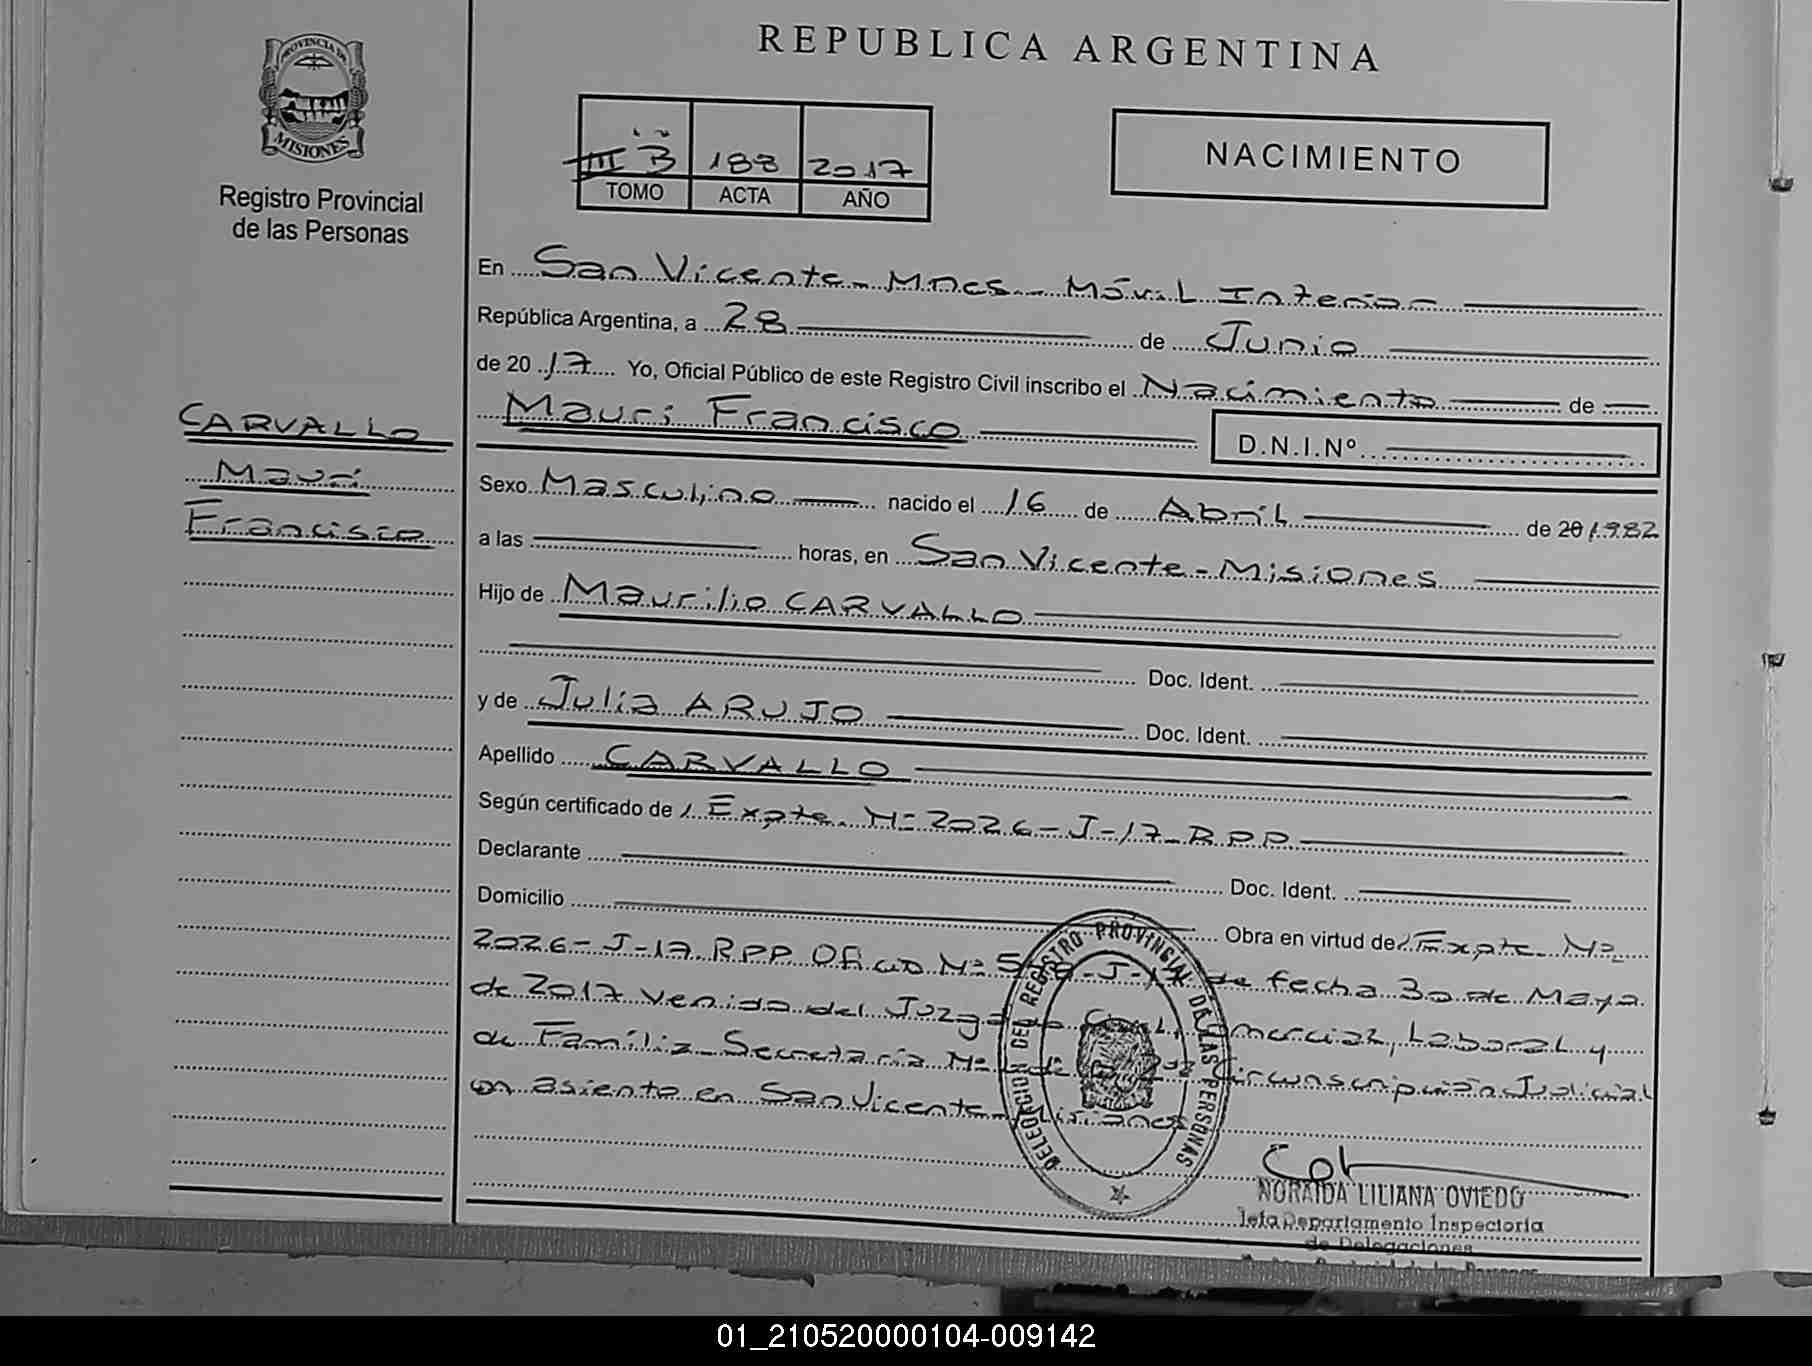 PROVINCIA DE
MISIONES
Registro Provincial
de las Personas
CARVALLO
Mauri
Francisco
REPUBLICA ARGENTINA
III B 188 2017
TOMO ACTA AÑO
NACIMIENTO
En San Vicente - Mnes - Móvil Interior
República Argentina, a 28 de Junio
de 2017 Yo, Oficial Público de este Registro Civil inscribo el Nacimiento de
Mauri Francisco D.N.I.Nº
Sexo Masculino nacido el 16 de Abril de 20 1982
a las horas, en San Vicente - Misiones
Hijo de Maurilio CARVALLO
Doc. Ident.
y de Julia ARUJO Doc. Ident.
Apellido CARVALLO
Según certificado de Expte. Nº 2026-J-17-RPP
Declarante Doc. Ident.
Domicilio Obra en virtud de Expte. Nº
2026-J-17 RPP Oficio Nº de fecha 30 de Mayo
de 2017 Venida del Juzgado Civil, Comercial, Laboral y
de Familia Secretaría Nº Circunscripción Judicial
con asiento en San Vicente - Misiones
DELEGACION DEL REGISTRO PROVINCIAL DE LAS PERSONAS
NORAIDA LILIANA OVIEDO
Jefa Departamento Inspectoría
de Delegaciones
01_210520000104-009142